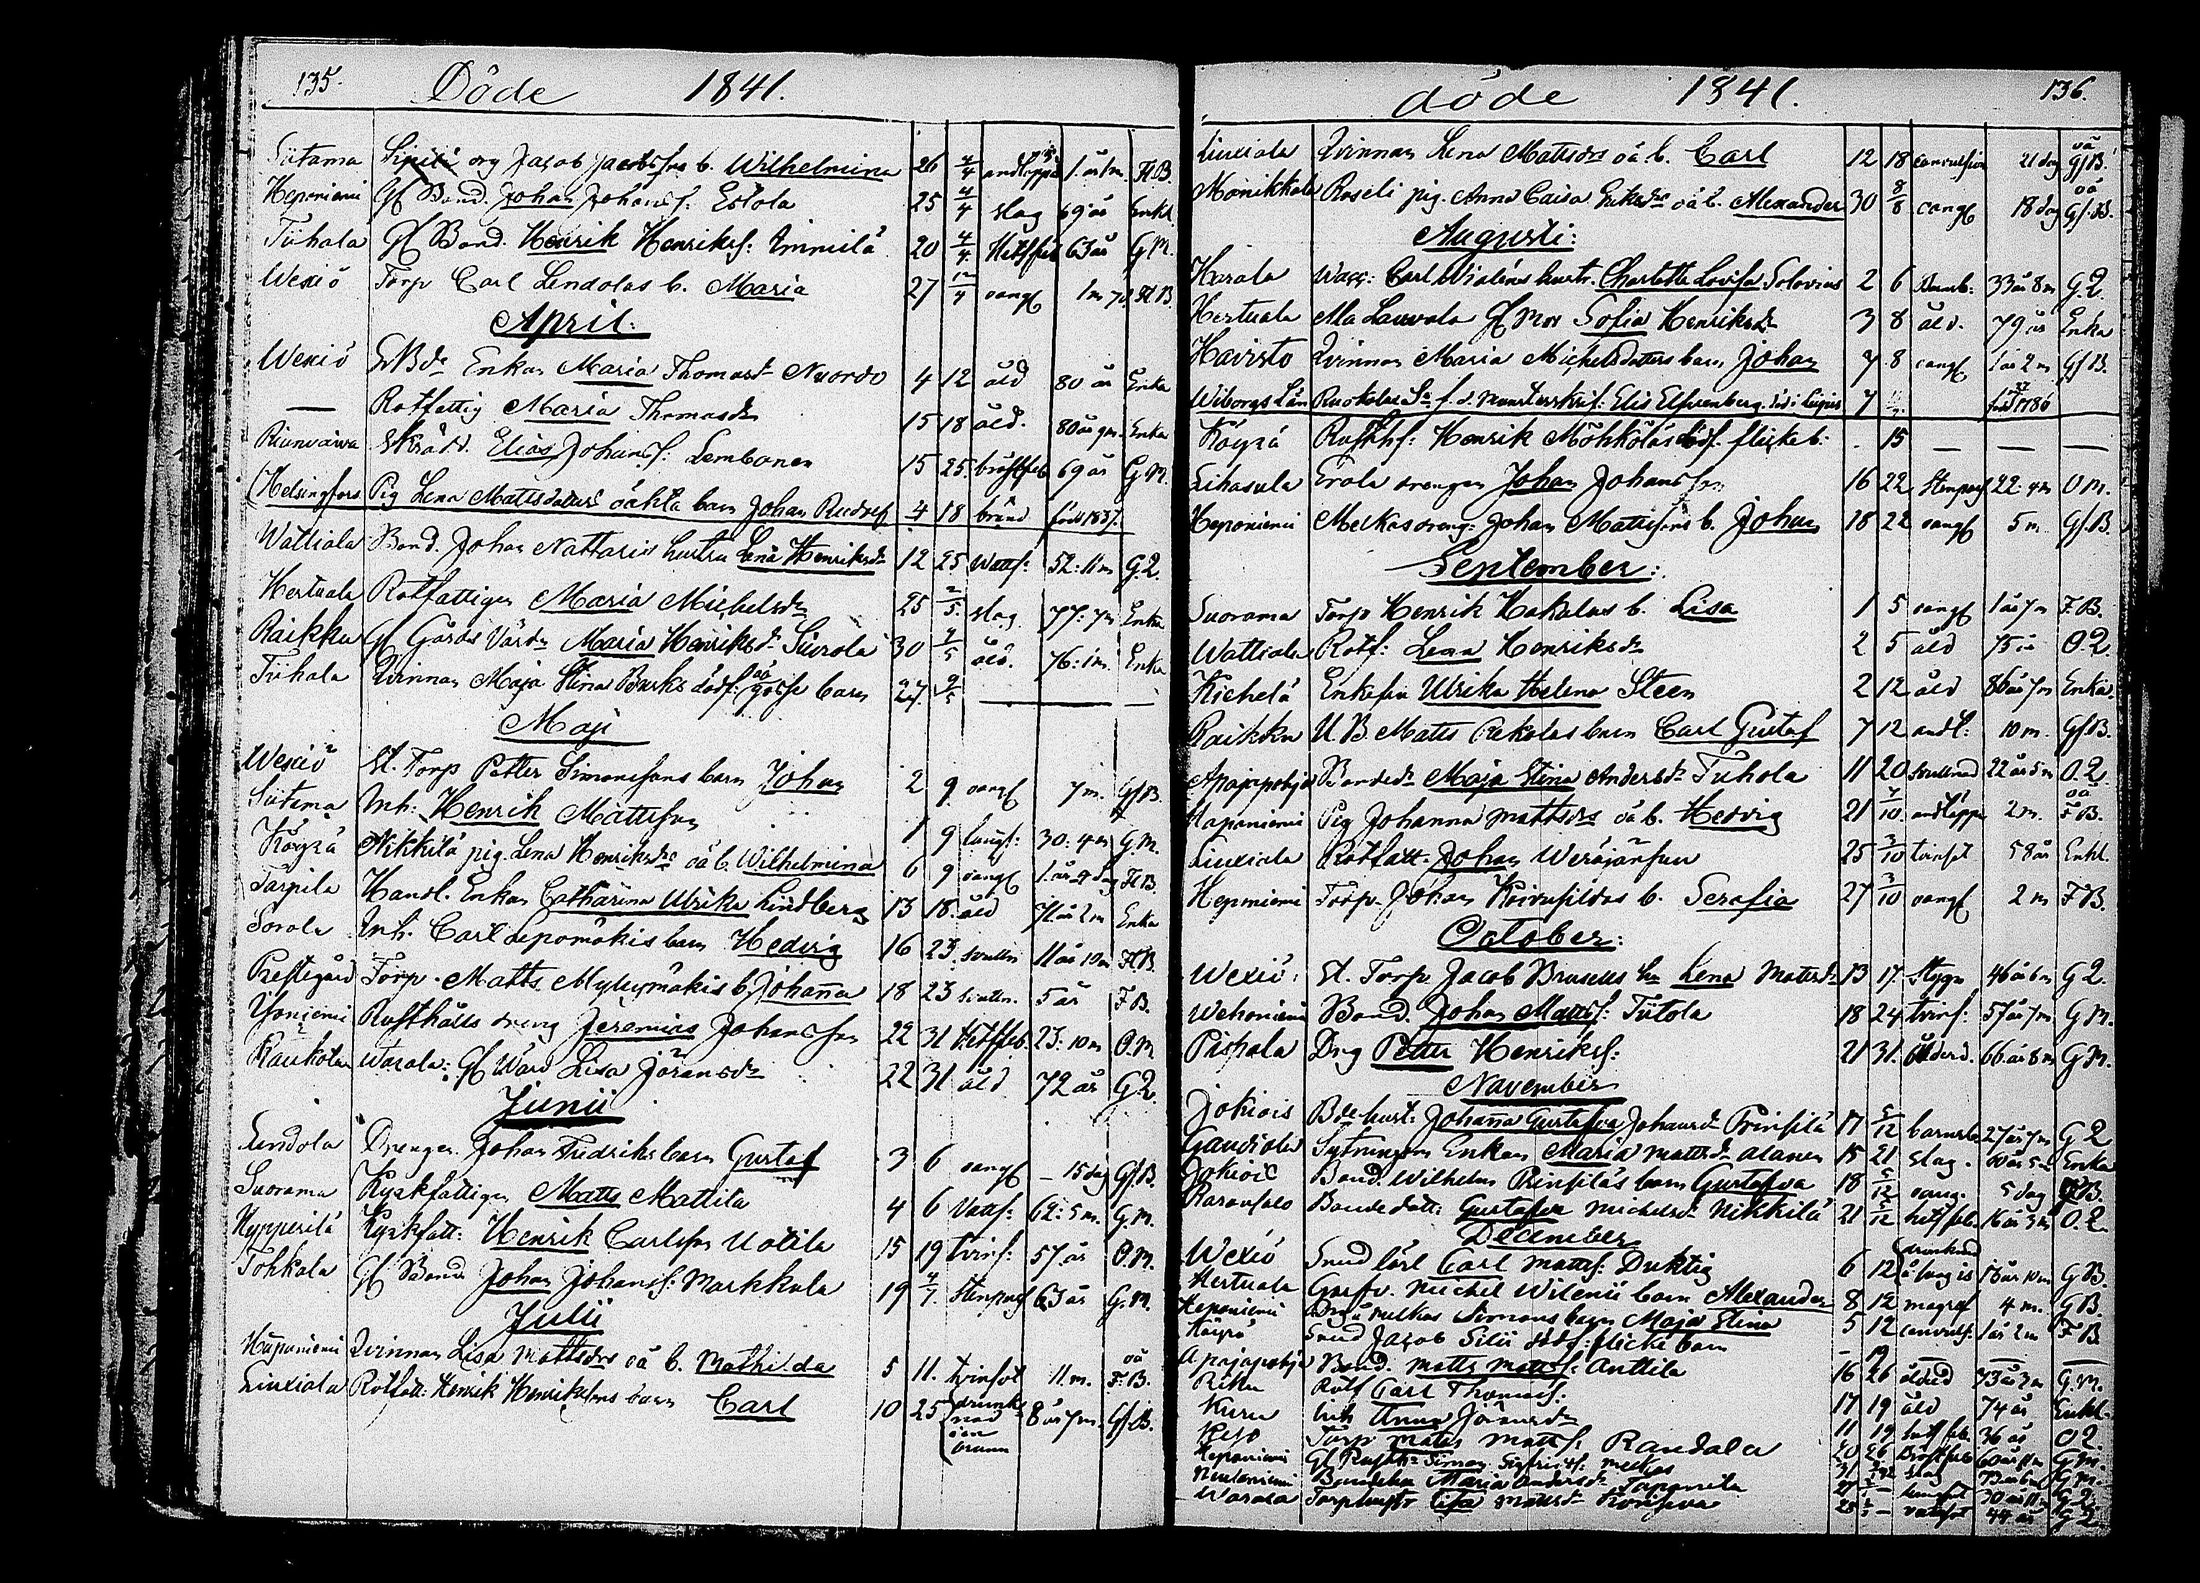 135. Döde 1841.
Siitama org Jacob Jacobssons b. Wilhelmina 26 4/4 andtäppa 1. år 1 m. Fl B.
Heponiemi Gl Bond. Johan Johansf: Eskola 25 4/4 slag 69 år Enkl.
Tiihala Gl Bond. Henrik Henriksf: 20 4/4 Hetsfeb 63 år G M.
Wexiö Torp Carl Lendolas b. Maria 27 12/4 oangf 1 m 7 d. Fl B.
April:
Wexiö Enkan Maria Thomasdr Nuordo 4 12 åld 80 år Enka
— Rotfattig Maria Thomasdr 15 18 åld. 80 år 9 m. Enka
Skrädd. Elias Johansf: Lembonen 15 25 bröstfeb 69 år G M.
(Helsingfors Pig Lena Mattsdotters oäkta barn Johan Rudolf 4 18 bränd född 1837.
Wattiala Bond. Johan Nattaris hustru Lena Henriksdr 12 25 Wattf: 52: 11 m G. Q.
Hertuala Rotfattigen Maria Michelsdr 25 2/5. slag 77: 7 m Enka
Raikku Gl Gårds Värdn Maria Henriksdr Siurola 30 7/5 åld. 76: 1 m. Enka
Tiihala Qvinnan Maja Stina Burks dödf: oä gosse barn 27. 9/5 — —
Maji
Wexiö St. Torp Petter Simonssons barn Johan 2 9 oangf 7 m. Gf B.
Siitama Inh: Henrik Mattsson 1 9 lungs: 30: 4 m G. M.
Köyrä Nikkilä pig. Lena Henriksdrs oä b. Wilhelmina 6 9 oangf 1. år 9 dag Fl B.
Tarpila Handl. Enkan Catharina Ulrika Lindberg 13 18. åld 71 år 2 m Enka
Sorola Inh. Carl Lepomäkis barn Hedvig 16 23 svulln 11 år 10 m Fl B.
Prestegård Torp. Matts Myllymäkis b. Johanna 18 23 svulln. 5 år F B.
Yoniemi Rusthålls dreng Jeremias Johansson 22 31 Hetsfeb. 23: 10 m O. M
Kaukola Warala: Gl Ward Lisa Jöransdr 22 31 åld 72 år G Q.
Junii
Lendola Drengen Johan Fredriks barn Gustaf 3 6 oangf — 15 dag Gf. B.
Suorama Kyrkfattigen Matts Mattila 4 6 Vattf: 62: 5 m. G. M.
Hypperilä Kyrkfatt: Henrik Carlsson Uotila 15 19 tvinf: 57. år O. M.
Tohkala Gl Bond Johan Johansf: Markkula 19 4/7. Stenpass 63 år G. M.
Julii
Haponiemi Qvinnan Lisa Mattsdrs oä b. Mathilda 5 11. tvinsot 11. m. oä F. B.
Liuxiala Rotfatt: Henrik Henrikssons barn Carl 10 25 drunknad i en brunn 8 år 7 m. Gf. B.
döde 1841. 136.
Liuxiala Qvinnan Lena Mattsdrs oä b. Carl 12 18 convulsion 21 dag oä Gf B.
Mönikkala Roseli pig. Anna Caisa Eriksdrs oä b. Alexander 30 8/8 oangf 18 dag oä Gf. B.
Augusti:
Harala Carl Wialéns hustr. Charlotta Lovisa Solovius 2 6 Barnb: 33 år 8 m G. Q.
Hertuala Lauvola Gl Mor Sofia Henriksdr 3 8 åld. 79 år Enka
Havisto Qvinnan Maria Michelsdotters barn Johan 7 8 oangf 1 år 2 m Gf B.
Wiborgs Län Ruokolax Sn f. d. Munsterskrif: Elis Elfvenberg. 7 född 27/ 1786
Köyrä Rusthf: Henrik Möhköläs dödf. flicke b: . 15 — —
Lihasula Erola drengen Johan Johansson 16 22 Stenpass 22: 4 m O M.
Heponiemi Melkas dreng. Johan Mattssons b. Johan 18 22 oangf 5 m. Gf. B.
September:
Suorama Torp Henrik Hakalas b. Lisa 1 5 oangf 1 år 7 m F. B.
Wattiala Rotf: Lena Henriksdr 2 5 åld 75 år O. Q
Kichelä Enkefru Ulrika Helena Steen 2 12 åld 86 år 7 m Enka.
Raikku U B Matts barn Carl Gustaf 7 12 andt: 10 m. Gf B.
Apajapohja Bondedr Maja Stina Andersdr Tuhola 11 20 svullnad 22 år 5 m O. Q
Haponiemi Pig Johanna Mattsdrs oä b. Hedvig 21 4/10. andtäppa 2 m. oä F B.
Liuxiala Rotfatt. Johan Weräjänsuu 25 3/10 tvinsot 58 år Enkl.
Heponiemi Torp. Johan b. Serafia 27 3/10 oangf 2 m F B.
October:
Wexiö St. Torp Jacob Bruseus hu Lena Mattsdr 13 17 Stygn 46 år 6 m G Q.
Wehoniemi Bond. Johan Mattsf: Tiitola 18 24 tvinf: 57 år 7 m G M.
Pispala Drg Petter Henriksf: 21 31. ålderd. 66 år 8 m G M.
November
Jokiois Bde hust. Johanna Gustafva Johansdr Prinsilä 17 5/12 barnsb 27 år 7 m G Q
Gaudiala Sytningen Enkan Maria Mattsdr Alanen 15 21 slag. Enka
Jokiois Bond. Wilhelm Prinsiläs barn Gustafva 18 5/12 oang. 5 dag B.
Bondedott: Gustafva Michelsdr Nikkilä 21 5/12 hetsfeb 16 år 3 m O. Q
December
Wexiö Snidkarl Carl Mattsf: Duktig 6 12 drunknad å lung is 18 år 10 m G B.
Hertuala Michel Wilenii barn Alexander 8 12 magref 4 m. G B.
Heponiemi Drg Melkas Simons barn Maja Stina 5 12 convuls. 1 år 2 m F B.
Köyrä Smed Jacob Silii dödf: flicke barn - 19 — —
Apajapohja Bond. Matts Mattsf: Anttila 16 26 ålderd 73 år 3 m G. M.
Riku Rotf Carl Thomasf: 17 19 åld 74 år Enkl.
Kuru Inh Anna Jöransdr 11 19 hetsfeb 36 år O Q.
Torp Matts Mattsf: Randala 20 26 Bröstfeb 60 år 11 m G M.
Heponiemi Gl Rusth. Simon Sigfridsf: Melkas slag 73 år 6 m G M.
Neulaniemi Bondehu Maria Andersdr 30 år 11 m G Q.
Warala Torphustr Lisa Mattsdr 44 år G Q.